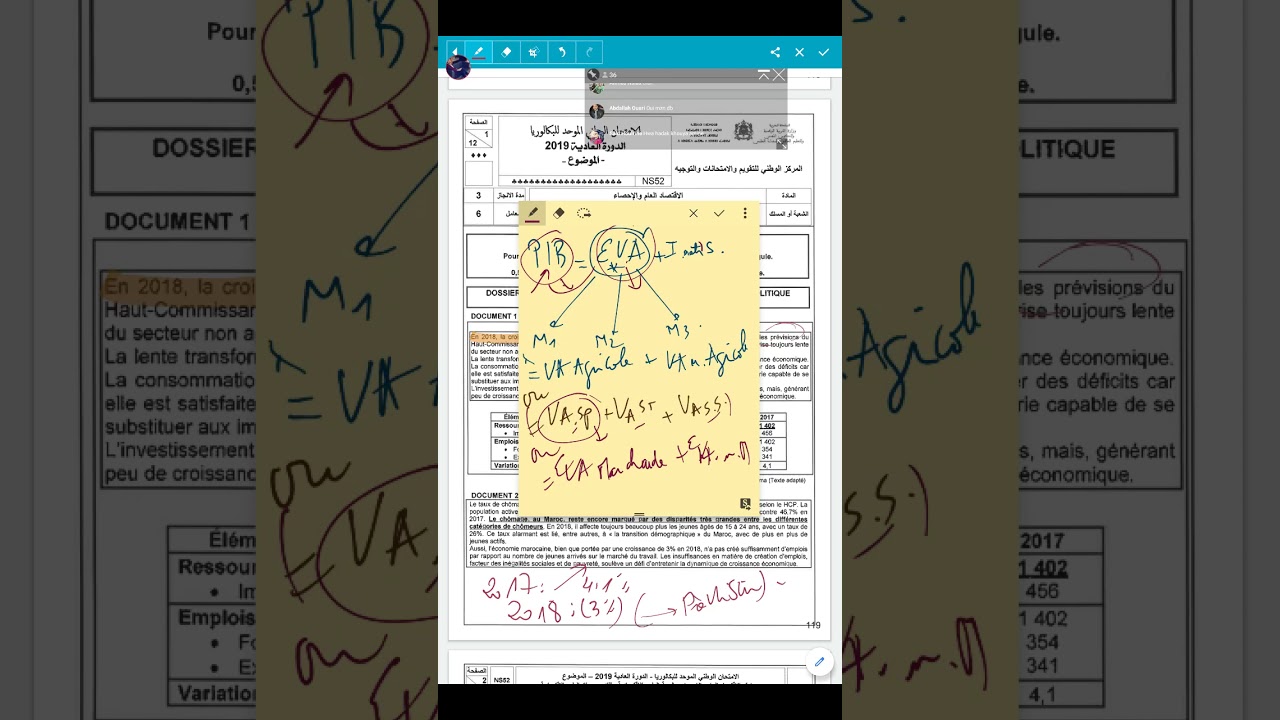 36
Abdellah Ouari Oui mm dh
الصفحة
1
12
♦♦♦
الامتحان الوطني الموحد للبكالوريا
الدورة العادية 2019
- الموضوع -
NS52
المركز الوطني للتقويم والامتحانات والتوجيه
3
مدة الانجاز
الاقتصاد العام والإحصاء
المادة
6
الشعبة أو المسلك
Pour
gule.
0,5
DOSSIER
LITIQUE
DOCUMENT 1
PIB = ΣVA + I nets S.
M1 M2 M3
= VA Agricole + VA n. Agricole
ou
= VA.SP + VA ST + VA S.S.)
ou
= ΣVA Marchande + ΣVA. n. M
En 2018, la croi
les prévisions du
Haut-Commissar
toujours lente
du secteur non a
La lente transfor
ance économique.
La consommatio
er des déficits car
elle est satisfaite
rie capable de se
substituer aux im
L'investissement
s, mais, générant
peu de croissanc
économique.
Élém
2017
Ressour
1 402
• Im
456
Emplois
1 402
• Fo
354
• Ex
341
Variation
4,1
ma (Texte adapté)
DOCUMENT 2
Le taux de chôma
selon le HCP. La
population active
contre 46.7% en
2017. Le chômage, au Maroc, reste encore marqué par des disparités très grandes entre les différentes
catégories de chômeurs. En 2018, il affecte toujours beaucoup plus les jeunes âgés de 15 à 24 ans, avec un taux de
26%. Ce taux alarmant est lié, entre autres, à « la transition démographique » du Maroc, avec de plus en plus de
jeunes actifs.
Aussi, l'économie marocaine, bien que portée par une croissance de 3% en 2018, n'a pas créé suffisamment d'emplois
par rapport au nombre de jeunes arrivés sur le marché du travail. Les insuffisances en matière de création d'emplois,
facteur des inégalités sociales et de pauvreté, soulève un défi d'entretenir la dynamique de croissance économique.
2017 : 4.1%
2018 : (3%) (→ Prévision)
119
الصفحة
2
NS52
الامتحان الوطني الموحد للبكالوريا - الدورة العادية 2019 – الموضوع